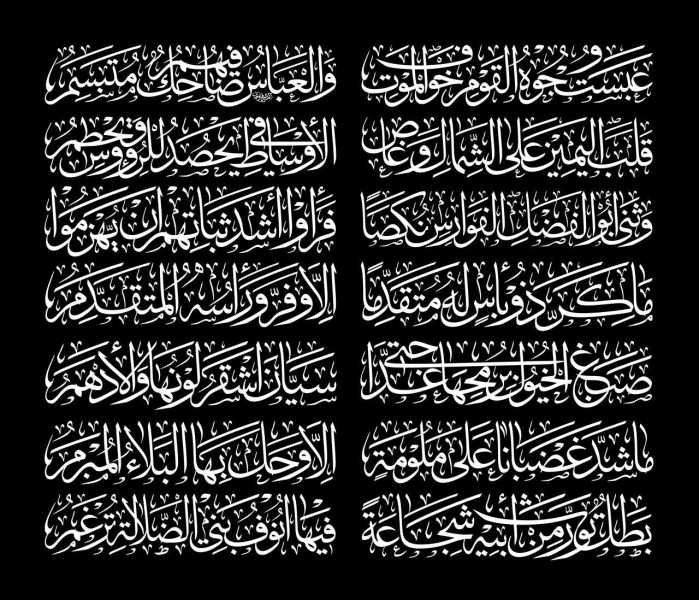 عَبَسَت وُجُوهُ القَومِ خَوفَ المَوتِ وَالعَبّاسُ فيهِم ضاحِكٌ مُتَبَسِّمُ
قَلَبَ اليَمينَ عَلى الشِّمالِ وَغاصَ في الأَوساطِ يَحصُدُ لِلرُّؤوسِ وَيَحطِمُ
وَثَنى أَبو الفَضلِ الفَوارِسَ نُكَّصًا فَرَأَوا أَشَدَّ ثَباتِهِم أَن يُهزَموا
ما كَرَّ ذو بَأسٍ لَهُ مُتَقَدِّمًا إِلّا وَفَرَّ وَرَأسُهُ المُتَقَدِّمُ
صَبَغَ الخُيولَ بِرُمحِهِ حَتّى غَدا سِيّانَ أَشقَرُ لَونِها وَالأَدهَمُ
ما شَدَّ غَضبانًا عَلى مَلمومَةٍ إِلّا وَحَلَّ بِها البَلاءُ المُبرَمُ
بَطَلٌ تَوَرَّثَ مِن أَبيهِ شَجاعَةً فيها أُنوفُ بَني الضَّلالَةِ تُرغَمُ